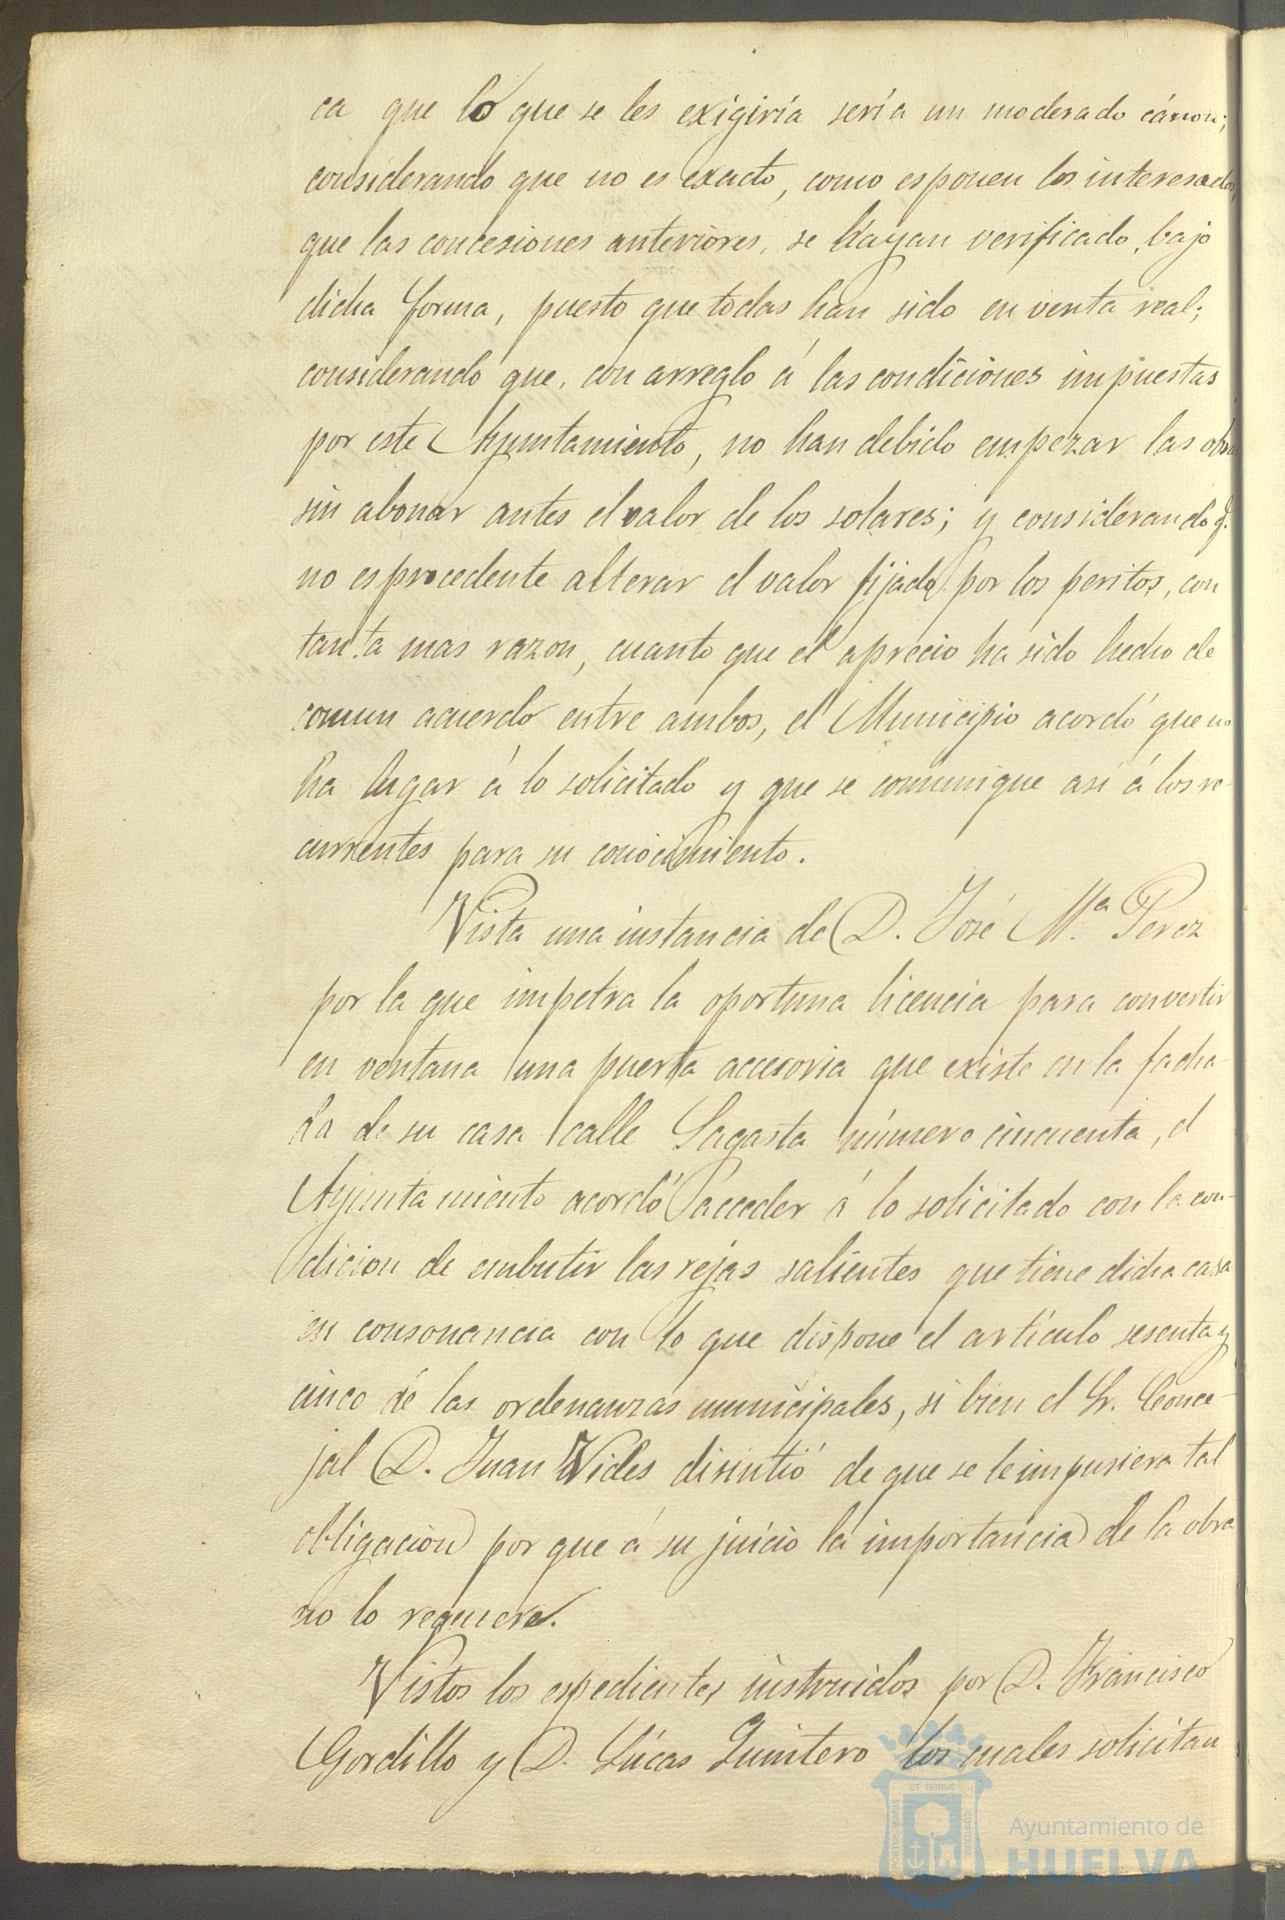 ca que lo que se les exigiría sería un moderado cánon;
considerando que no es exacto, como esponen los interesados,
que las concesiones anteriores, se hayan verificado, bajo
dicha forma, puesto que todas han sido en venta real;
considerando que, con arreglo á las condiciones impuestas
por este Ayuntamiento, no han debido empezar las obras
sin abonar antes el valor de los solares; y considerando q.
no es procedente alterar el valor fijado por los peritos, con
tanta mas razon, cuanto que el aprecio ha sido hecho de
comun acuerdo entre ambos, el Municipio acordó que no
ha lugar á lo solicitado y que se comunique así á los re-
currentes para su conocimiento.
Vista una instancia de D. José M.ª Perez
por la que impetra la oportuna licencia para convertir
en ventana una puerta accesoria que existe en la facha-
da de su casa calle Sagasta número cincuenta, el
Ayuntamiento acordó acceder á lo solicitado con la con-
dicion de embutir las rejas salientes que tiene dicha casa
en consonancia con lo que dispone el artículo sesenta y
cinco de las ordenanzas municipales, si bien el Sr. Conce-
jal D. Juan Vides disintió de que se le impusiera tal
obligacion por que á su juicio la importancia de la obra
no lo requiere.
Vistos los espedientes instruidos por D. Francisco
Gordillo y D. Lúcas Quintero los cuales solicitan
Ayuntamiento de
HUELVA